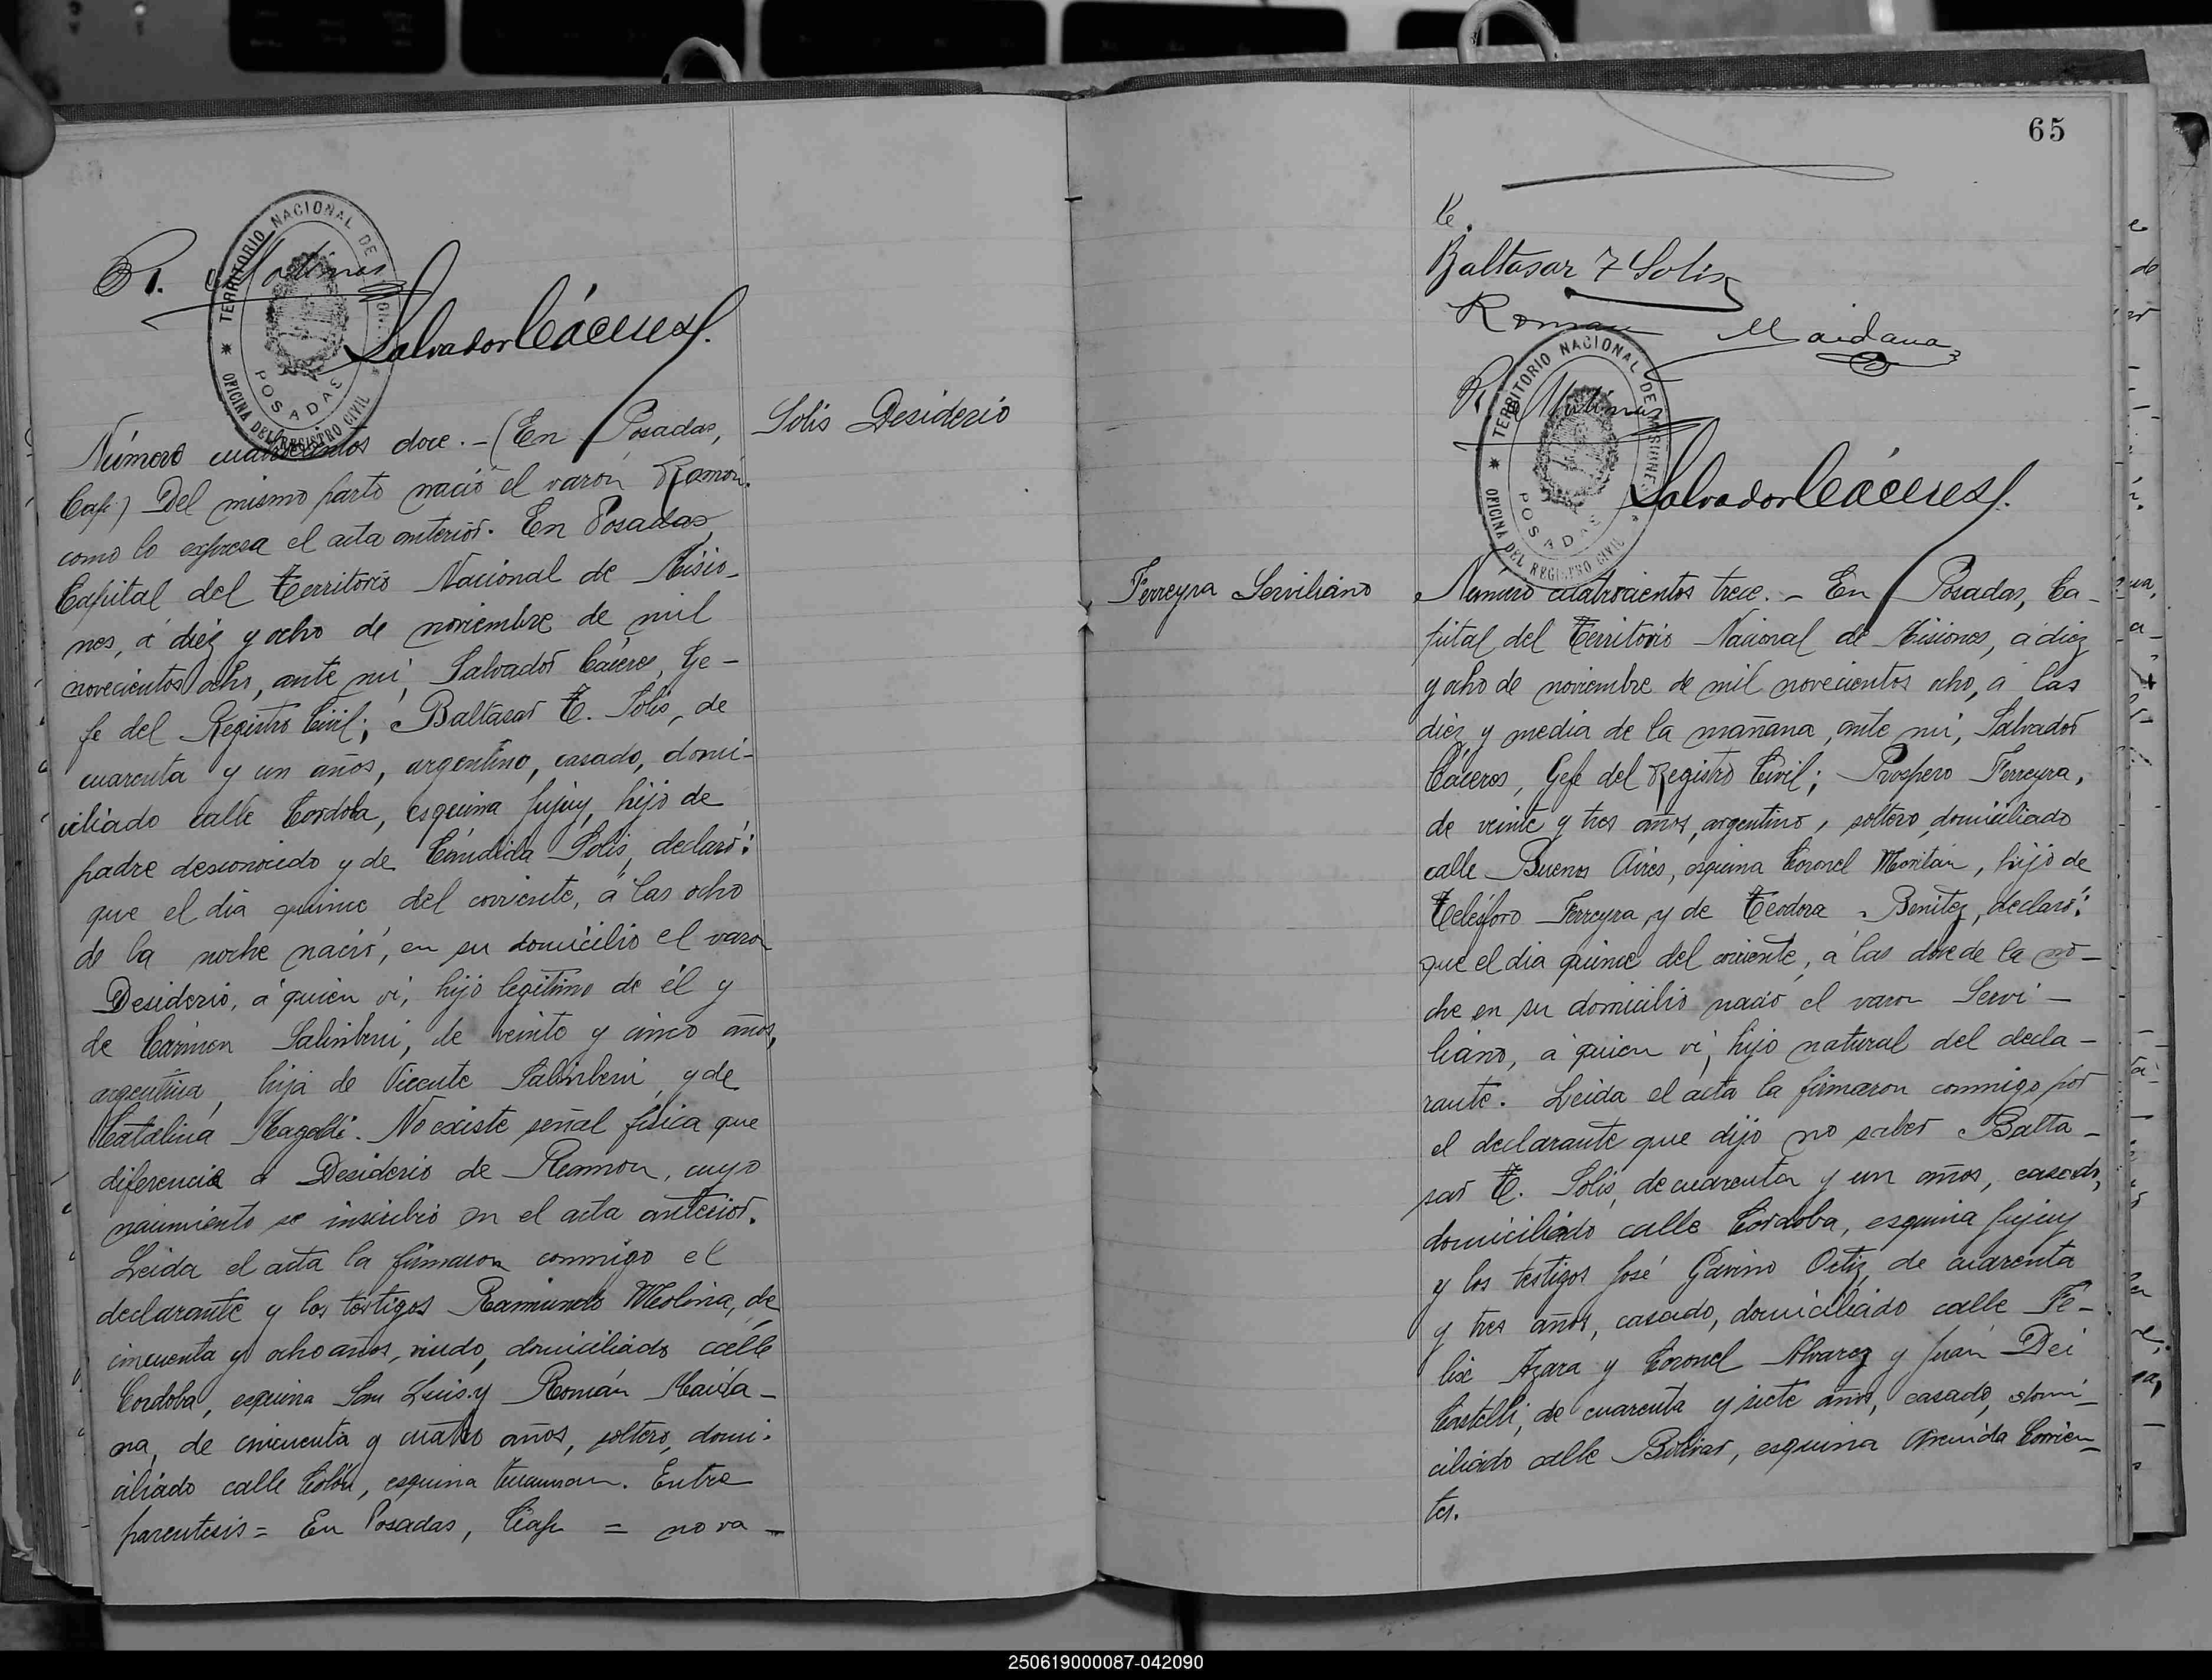 R. Molinas
TERRITORIO NACIONAL DE MISIONES
OFICINA DEL REGISTRO CIVIL
POSADAS
Salvador Cáceres.
Número cuatrocientos doce. - (En Posadas,
Solis Desiderio
Cap.) Del mismo parto nació el varón Ramón.
como lo expresa el acta anterior. En Posadas
Capital del Territorio Nacional de Misio-
nes, á diez y ocho de noviembre de mil
novecientos ocho, ante mí, Salvador Cáceres, Ge-
fe del Registro Civil; Baltasar T. Solis, de
cuarenta y un años, argentino, casado, domi-
ciliado calle Cordoba, esquina Jujuy, hijo de
padre desconocido y de Cándida Solis, declaró:
que el dia quince del corriente, á las ocho
de la noche nació, en su domicilio el varon
Desiderio, á quien vi, hijo legitimo de él y
de Cármen Salimbeni, de veinte y cinco años,
argentina, hija de Vicente Salimbeni y de
Catalina Magaldi. No existe señal fisica que
diferencie á Desiderio de Ramon, cuyo
nacimiento se inscribió en el acta anterior.
Leida el acta la firmaron conmigo el
declarante y los testigos Raimundo Molina, de
cincuenta y ocho años, viudo, domiciliado calle
Cordoba, esquina San Luis y Román Maida-
na, de cincuenta y cuatro años, soltero, domi-
ciliado calle Colón, esquina Tucuman. Entre
parentesis = En Posadas, Cap = no va -
65
le.
Baltasar T Solis
Roman Maidana
R. Molinas
TERRITORIO NACIONAL DE MISIONES
OFICINA DEL REGISTRO CIVIL
POSADAS
Salvador Cáceres.
Ferreyra Serviliano
Número cuatrocientos trece. - En Posadas, Ca-
pital del Territorio Nacional de Misiones, á diez
y ocho de noviembre de mil novecientos ocho, á las
diez y media de la mañana, ante mí, Salvador
Cáceres, Gefe del Registro Civil; Prospero Ferreyra,
de veinte y tres años, argentino, soltero, domiciliado
calle Buenos Aires, esquina Coronel Moritán, hijo de
Telésforo Ferreyra, y de Teodora Benitez, declaró:
que el dia quince del corriente, á las doce de la no-
che en su domicilio nació el varon Servi-
liano, á quien vi, hijo natural del decla-
rante. Leida el acta la firmaron conmigo por
el declarante que dijo no saber Balta-
sar T. Solis, de cuarenta y un años, casado,
domiciliado calle Cordoba, esquina Jujuy
y los testigos José Gavino Ortiz, de cuarenta
y tres años, casado, domiciliado calle Fe-
lix Azara y Coronel Alvarez y Juan Dei
Castelli, de cuarenta y siete años, casado, domi-
ciliado calle Bolivar, esquina Avenida Corrien-
tes.
250619000087-042090